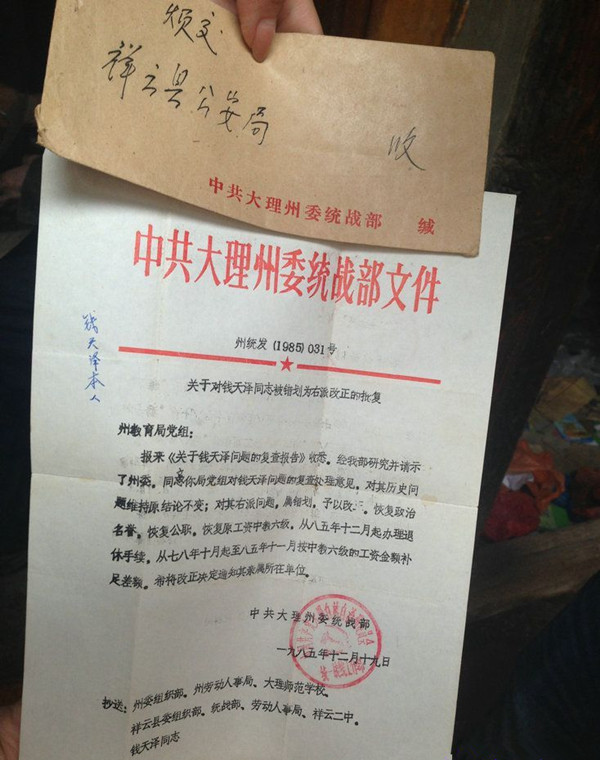 烦交
祥云县公安局
收
中共大理州委统战部 缄
中共大理州委统战部文件
钱天泽本人
州统发(1985)031号
关于对钱天泽同志被错划为右派改正的批复
州教育局党组:
报来《关于钱天泽问题的复查报告》收悉。经我部研究并请示
了州委。同意你局党组对钱天泽问题的复查处理意见,对其历史问
题维持原结论不变;对其右派问题,属错划,予以改正。恢复政治
名誉,恢复公职,恢复原工资中教六级。从八五年十二月起办理退
休手续。从七八年十月起至八五年十一月按中教六级的工资金额补
足差额。希将改正决定通知其亲属所在单位。
中共大理州委统战部
一九八五年十二月十九日
抄送:州委组织部。州劳动人事局、大理师范学校。
祥云县委组织部。统战部、劳动人事局、祥云二中。
钱天泽同志